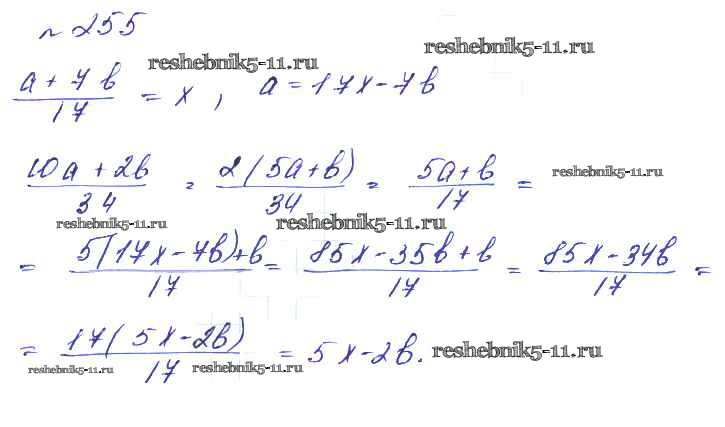 №255
reshebnik5-11.ru
reshebnik5-11.ru
(a + 7b)/17 = x, a = 17x - 7b
(10a + 2b)/34 = 2(5a+b)/34 = (5a+b)/17 =
reshebnik5-11.ru
reshebnik5-11.ru
reshebnik5-11.ru
= (5(17x-7b)+b)/17 = (85x-35b+b)/17 = (85x-34b)/17 =
= 17(5x-2b)/17 = 5x-2b.
reshebnik5-11.ru
reshebnik5-11.ru
reshebnik5-11.ru